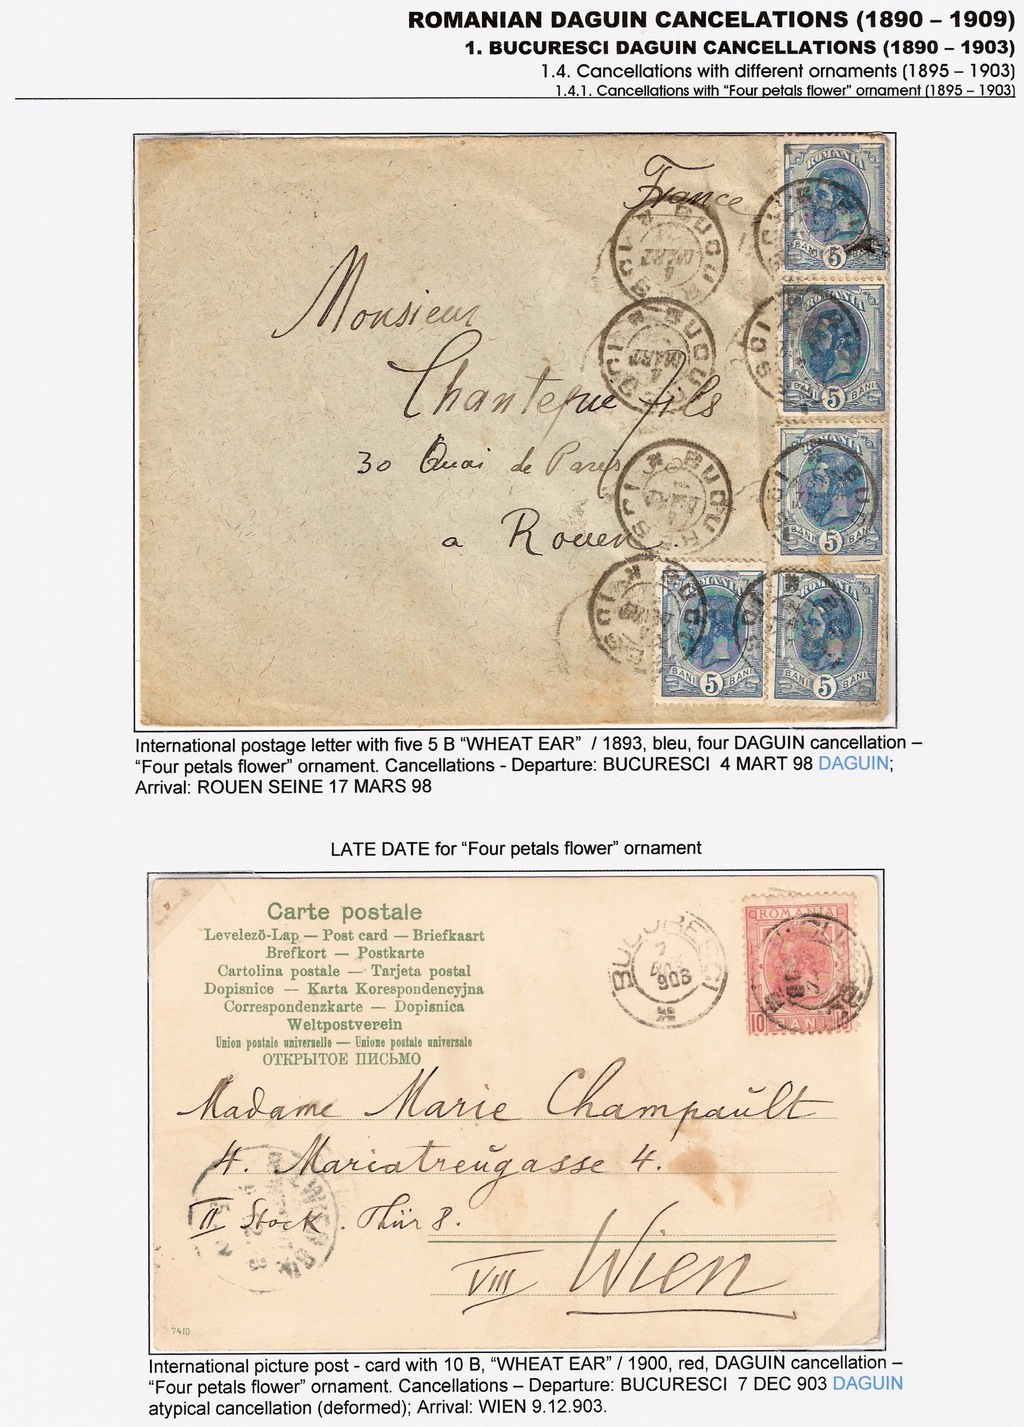 ROMANIAN DAGUIN CANCELATIONS (1890 – 1909)
1. BUCURESCI DAGUIN CANCELLATIONS (1890 – 1903)
1.4. Cancellations with different ornaments (1895 – 1903)
1.4.1. Cancellations with “Four petals flower” ornament (1895 – 1903)
France
Monsieur
Chantepie fils
30 Quai de Paris
a Rouen
ROMANIA
BANI 5 BANI
ROMANIA
BANI 5 BANI
ROMANIA
BANI 5 BANI
ROMANIA
BANI 5 BANI
ROMANIA
BANI 5 BANI
BUCURESCI
4
MART
International postage letter with five 5 B “WHEAT EAR” / 1893, bleu, four DAGUIN cancellation –
“Four petals flower” ornament. Cancellations - Departure: BUCURESCI 4 MART 98 DAGUIN;
Arrival: ROUEN SEINE 17 MARS 98
LATE DATE for “Four petals flower” ornament
Carte postale
Levelezö-Lap — Post card — Briefkaart
Brefkort — Postkarte
Cartolina postale — Tarjeta postal
Dopisnice — Karta Korespondencyjna
Correspondenzkarte — Dopisnica
Weltpostverein
Union postale universelle — Unione postale universale
ОТКРЫТОЕ ПИСЬМО
BUCURESCI
7
903
ROMANIA
10 BANI 10
Madame Marie Champaŭlt
4. Mariatreŭgasse 4.
II Stock. Thür 8.
VIII Wien
7410
International picture post - card with 10 B, “WHEAT EAR” / 1900, red, DAGUIN cancellation –
“Four petals flower” ornament. Cancellations – Departure: BUCURESCI 7 DEC 903 DAGUIN
atypical cancellation (deformed); Arrival: WIEN 9.12.903.